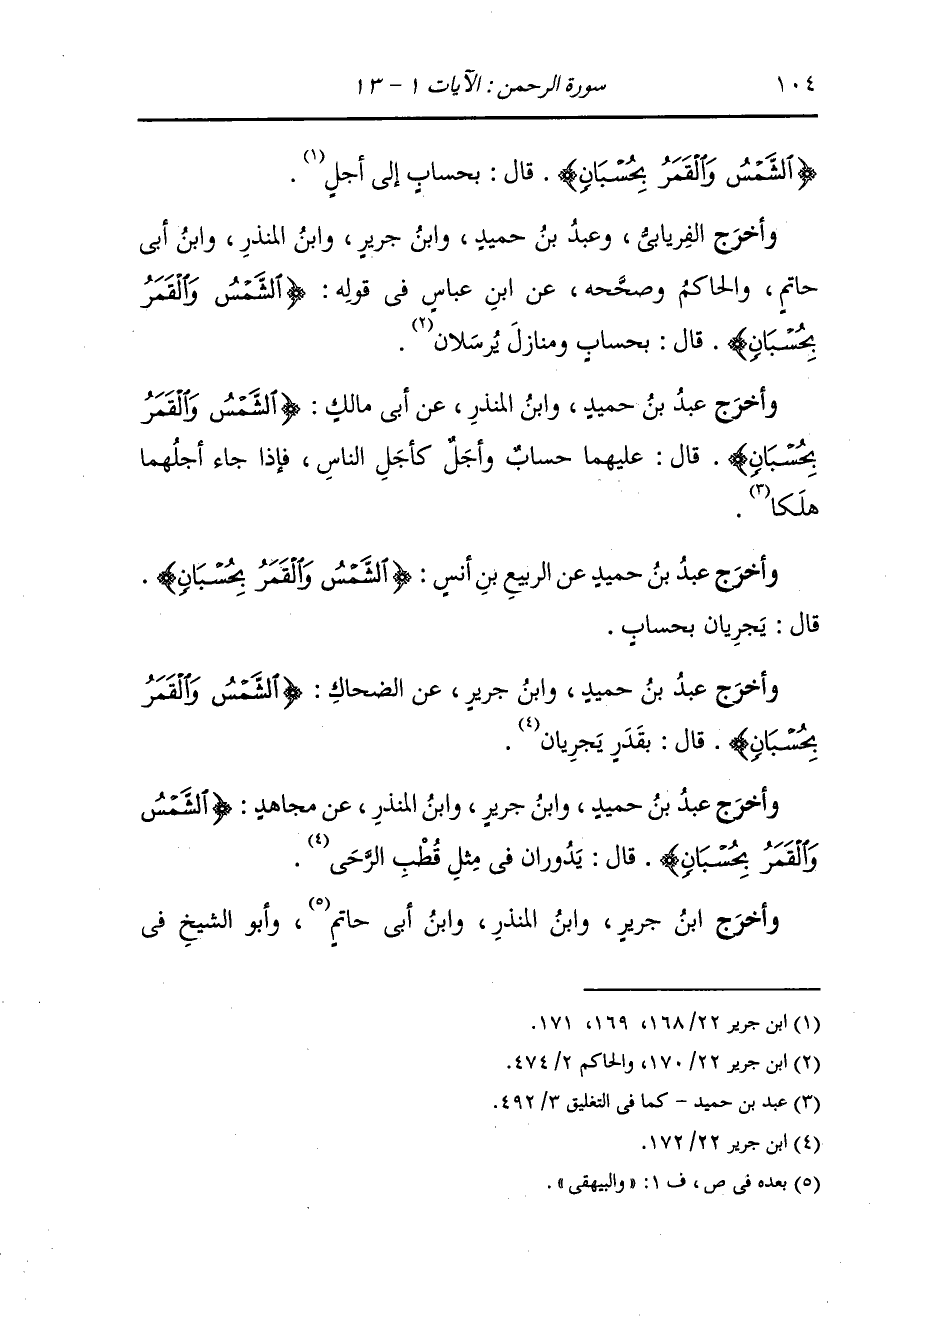 ١٠٤ سورة الرحمن : الآيات ١ - ١٣
﴿ٱلشَّمْسُ وَٱلْقَمَرُ بِحُسْبَانٍ﴾ . قال : بحسابٍ إلى أجلٍ(١) .
وأخرَج الفِريابىُّ ، وعبدُ بنُ حميدٍ ، وابنُ جريرٍ ، وابنُ المنذرِ ، وابنُ أبى
حاتمٍ ، والحاكمُ وصحَّحه ، عن ابنِ عباسٍ فى قولِه : ﴿ٱلشَّمْسُ وَٱلْقَمَرُ
بِحُسْبَانٍ﴾ . قال : بحسابٍ ومنازلَ يُرسَلان(٢) .
وأخرَج عبدُ بنُ حميدٍ ، وابنُ المنذرِ ، عن أبى مالكٍ : ﴿ٱلشَّمْسُ وَٱلْقَمَرُ
بِحُسْبَانٍ﴾ . قال : عليهما حسابٌ وأجَلٌ كأجَلِ الناسِ ، فإذا جاء أجلُهما
هلَكا(٣) .
وأخرَج عبدُ بنُ حميدٍ عن الربيعِ بنِ أنسٍ : ﴿ٱلشَّمْسُ وَٱلْقَمَرُ بِحُسْبَانٍ﴾ .
قال : يَجرِيان بحسابٍ .
وأخرَج عبدُ بنُ حميدٍ ، وابنُ جريرٍ ، عن الضحاكِ : ﴿ٱلشَّمْسُ وَٱلْقَمَرُ
بِحُسْبَانٍ﴾ . قال : بقَدَرٍ يَجرِيان(٤) .
وأخرَج عبدُ بنُ حميدٍ ، وابنُ جريرٍ ، وابنُ المنذرِ ، عن مجاهدٍ : ﴿ٱلشَّمْسُ
وَٱلْقَمَرُ بِحُسْبَانٍ﴾ . قال : يَدُوران فى مِثلِ قُطْبِ الرَّحَى(٤) .
وأخرَج ابنُ جريرٍ ، وابنُ المنذرِ ، وابنُ أبى حاتمٍ(٥) ، وأبو الشيخِ فى
(١) ابن جرير ٢٢/ ١٦٨، ١٦٩، ١٧١.
(٢) ابن جرير ٢٢/ ١٧٠، والحاكم ٢/ ٤٧٤.
(٣) عبد بن حميد - كما فى التغليق ٣/ ٤٩٢.
(٤) ابن جرير ٢٢/ ١٧٢.
(٥) بعده فى ص ، ف ١: « والبيهقى » .